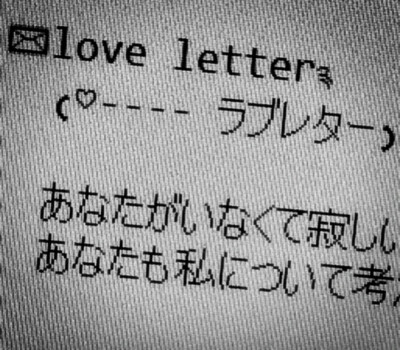 ✉love letterೃ
(♡---- ラブレター)
あなたがいなくて寂しい
あなたも私について考